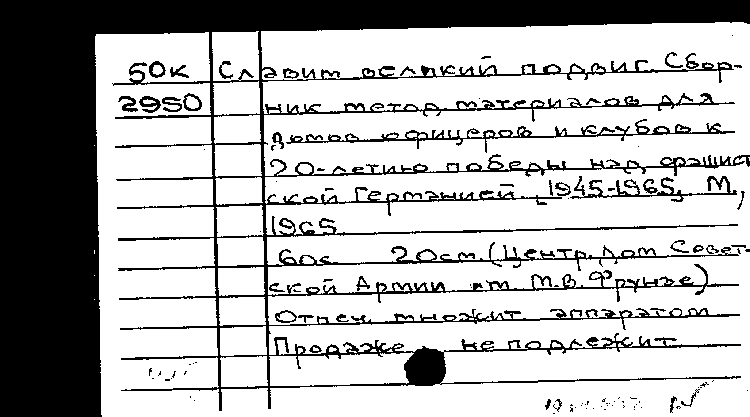 50к Славит великий подвиг. Сбор-
2950 ник метод. материалов для
домов офицеров и клубов к
20-летию победы над фашист
ской Германией [1945-1965]. М.,
1965
60с. 20см. (Центр. дом Совет-
ской Армии им М.В. Фрунзе)
Отпеч. множит. аппаратом
Продаже не подлежит